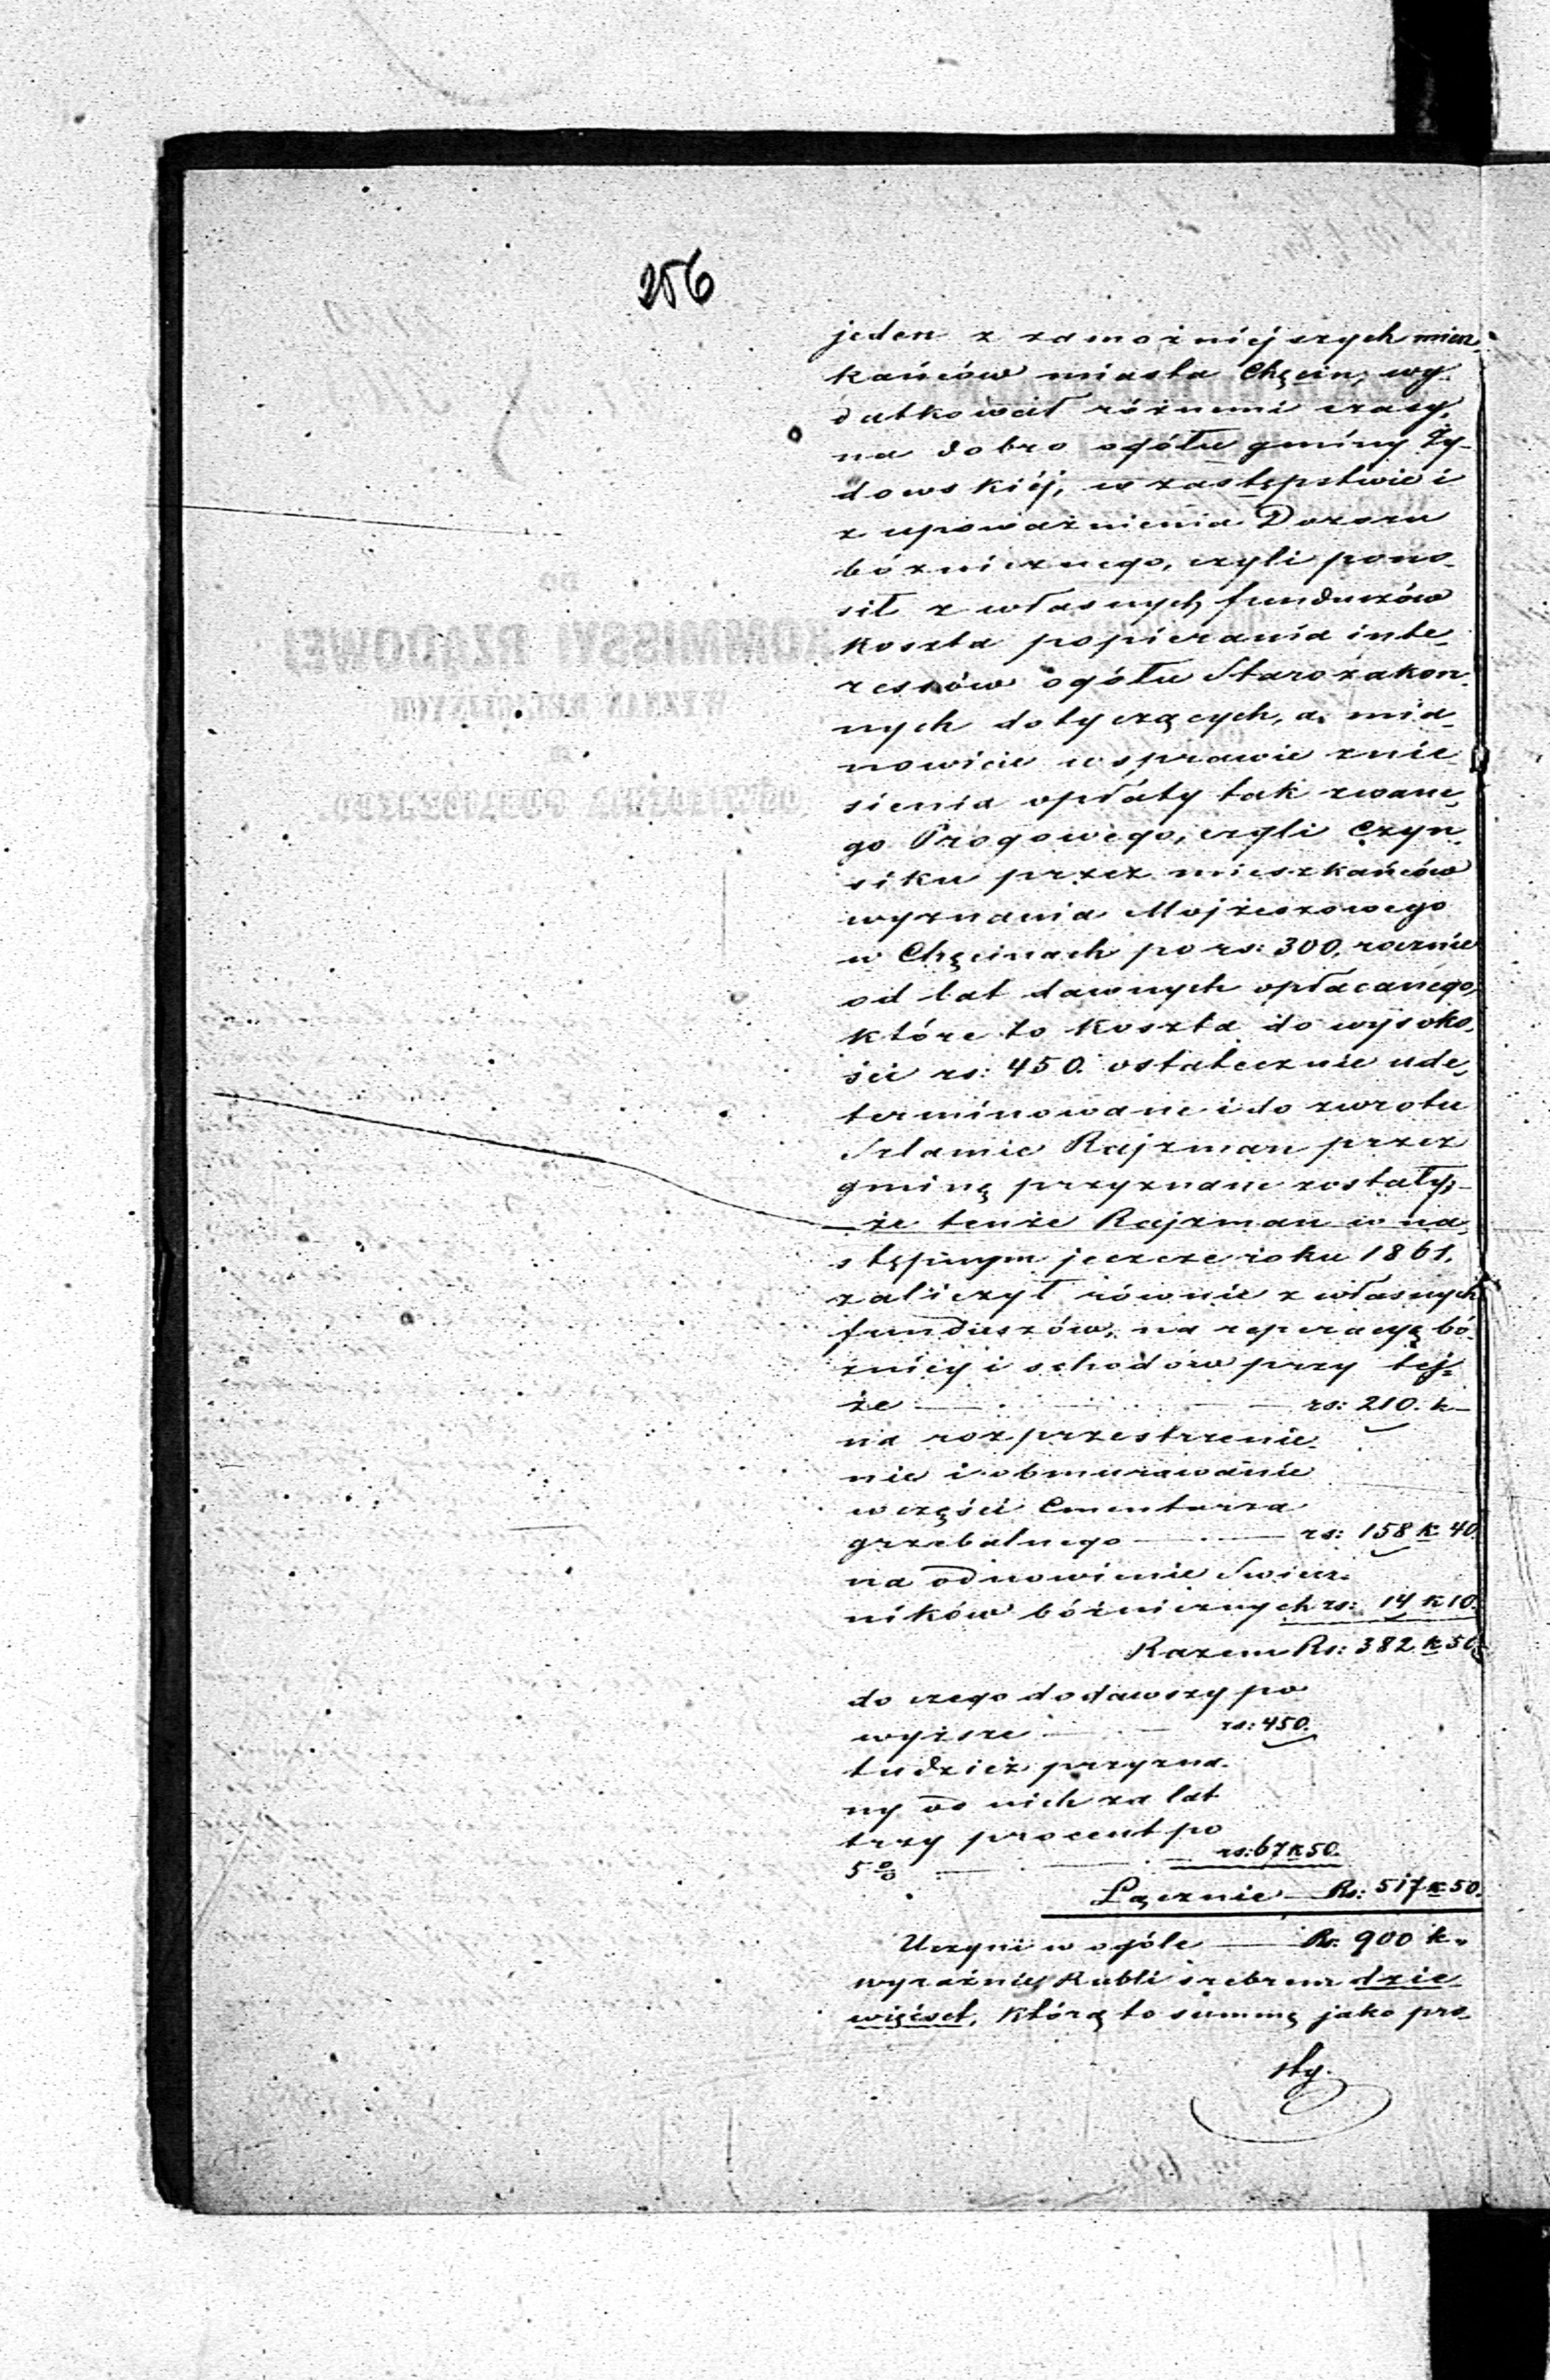 256
jeden z zamożniéjszych miesz-
kańców miasta Chęcin, wy-
datkował różnemi czasy,
na dobro ogółu gminy Ży-
dowskiéj, w zastępstwie i
z upoważnienia Dozoru
bóżniczego, czyli pono-
sił z własnych funduszów
koszta popierania inte-
ressów ogółu Starozakon-
nych dotyczących, a mia-
nowicie w sprawie znie-
sienia opłaty tak zwane-
go Progowego, czyli Czyn-
siku przez mieszkańców
wyznania Mojżeszowego
w Chęcinach po rs: 300, rocznie
od lat dawnych opłacanego,
które to koszta do wysoko-
ści rs: 450. ostatecznie ude-
terminowane i do zwrotu
Szlamie Rajzman przez
gminę przyznane zostały,-
że tenże Rajzman w na-
stępnym jeszcze roku 1861.
zaliczył równie z własnych
funduszów, na reperacyę bó-
żnicy i schodów przy tej-
że — rs: 210. k—
na rozprzestrzenie-
nie i obmurowanie
w części Cmentarza
grzebalnego — rs: 158 k 40.
na odnowienie Świecz-
ników bóżnicznych rs: 14 k 10.
Razem Rs: 382 k 50
do czego dodawszy po
wyższe — rs: 450.
tudzież przyzna-
ny od nich za lat
trzy procent po
5% — rs: 67 k 50.
Łącznie — Rs: 517 k 50.
Uczyni w ogóle — Rs. 900 k.
wyraźniej Rubli srebrem dzie-
więćset, którą to summę jako pro-
sty.
DO
KOMMISSYI RZĄDOWEJ
WYZNAŃ RELIGIJNYCH
OŚWIECENIA PUBLICZNEGO.